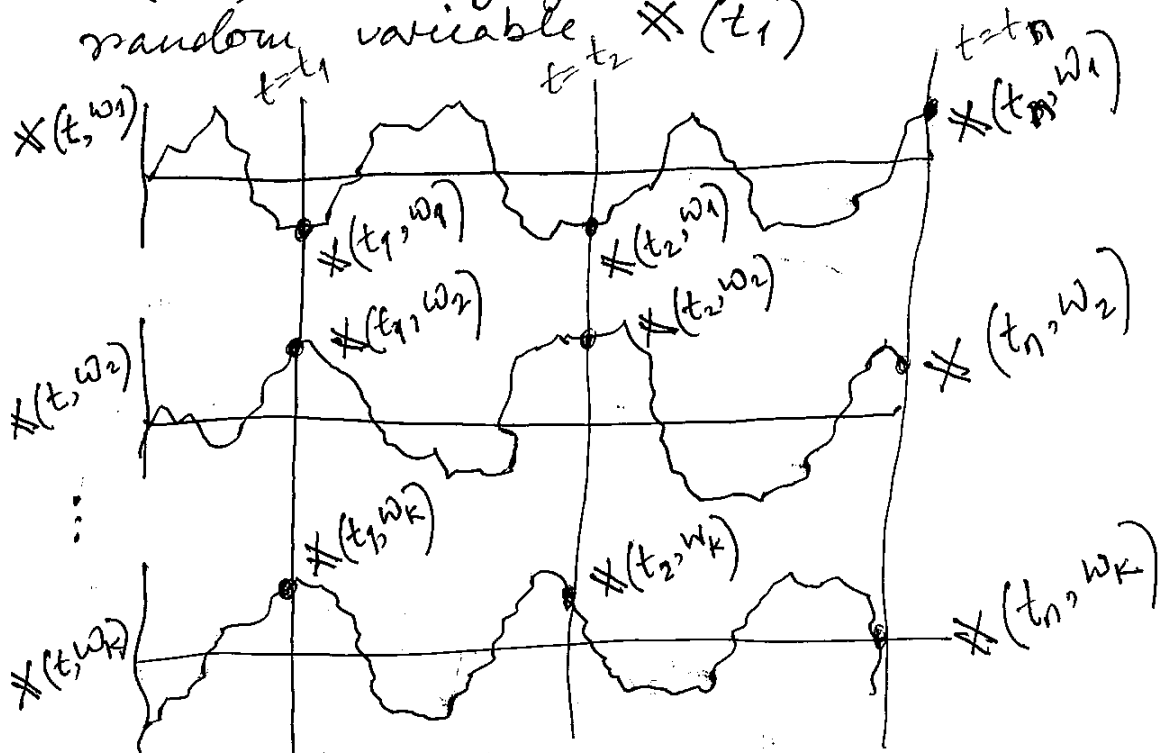 random variable X(t1)
t=t1 t=t2 t=tn
X(t,ω1) X(tn,ω1)
X(t1,ω1) X(t2,ω1)
X(t1,ω2) X(t2,ω2) X(tn,ω2)
X(t,ω2)
⋮
X(t1,ωk) X(t2,ωk) X(tn,ωk)
X(t,ωk)